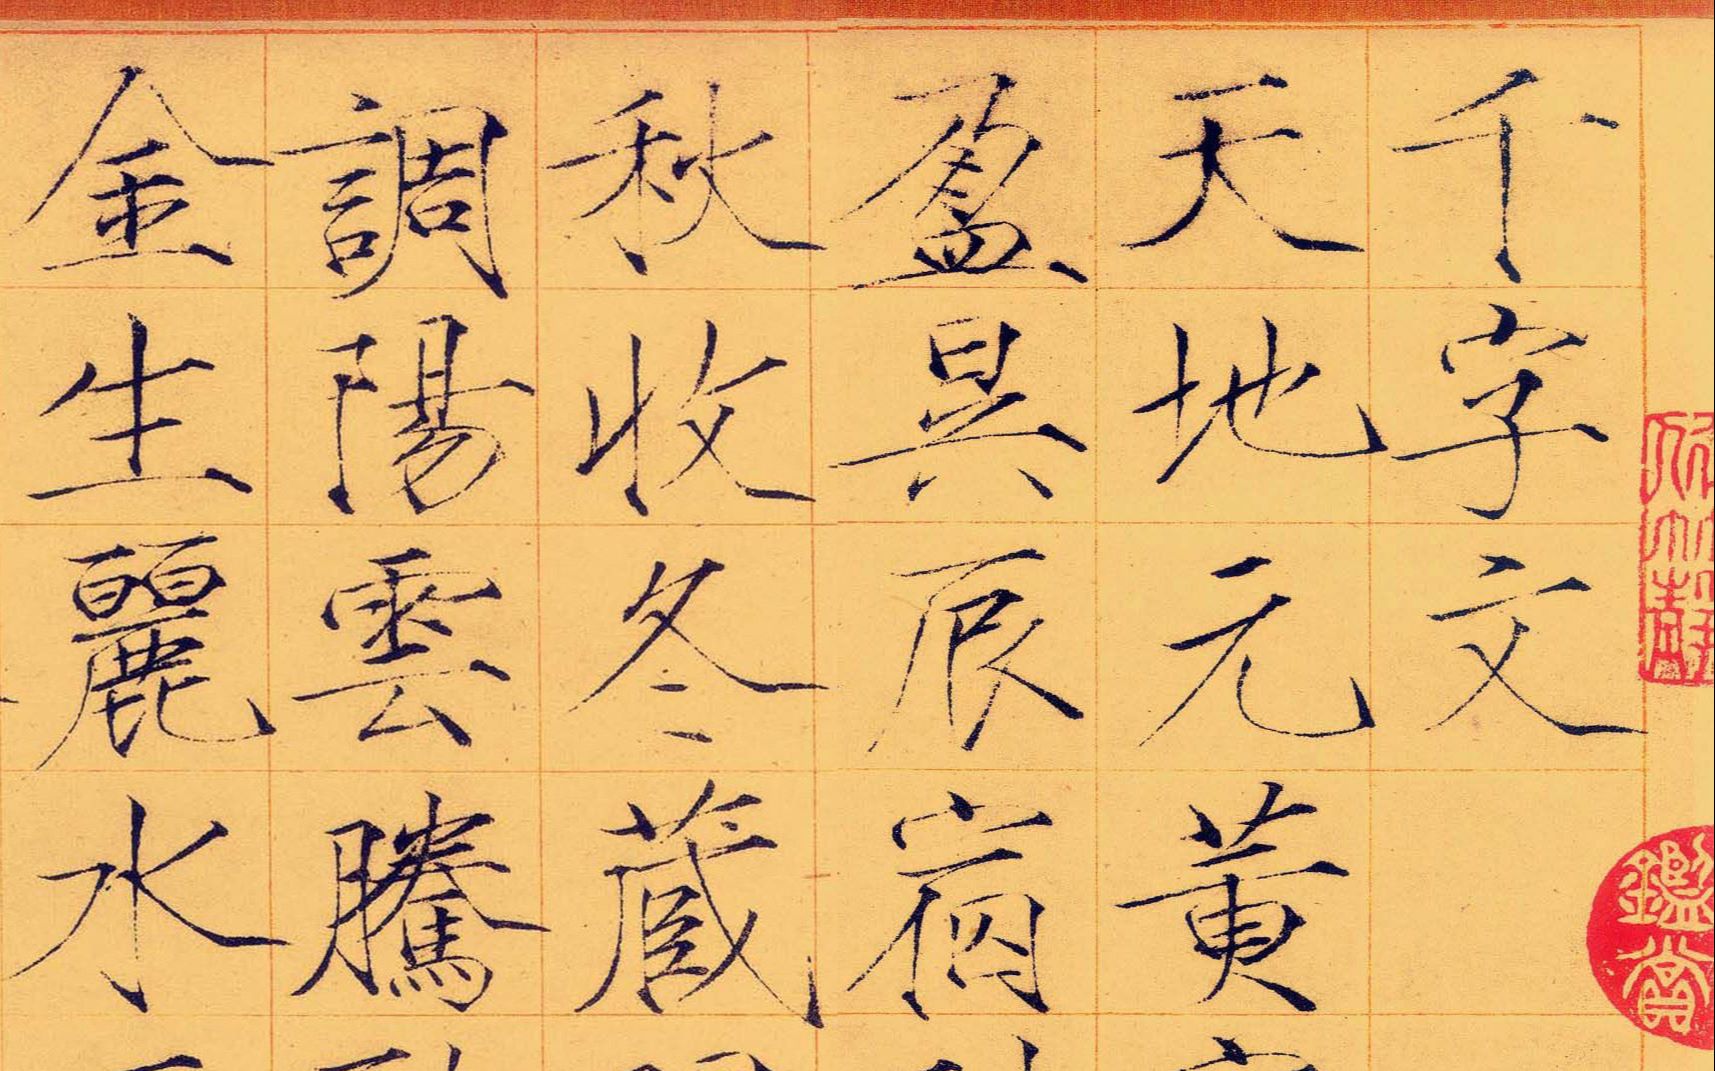 千字文
天地元黄
盈昃辰宿
秋收冬藏
調陽雲騰
金生麗水
鑑賞